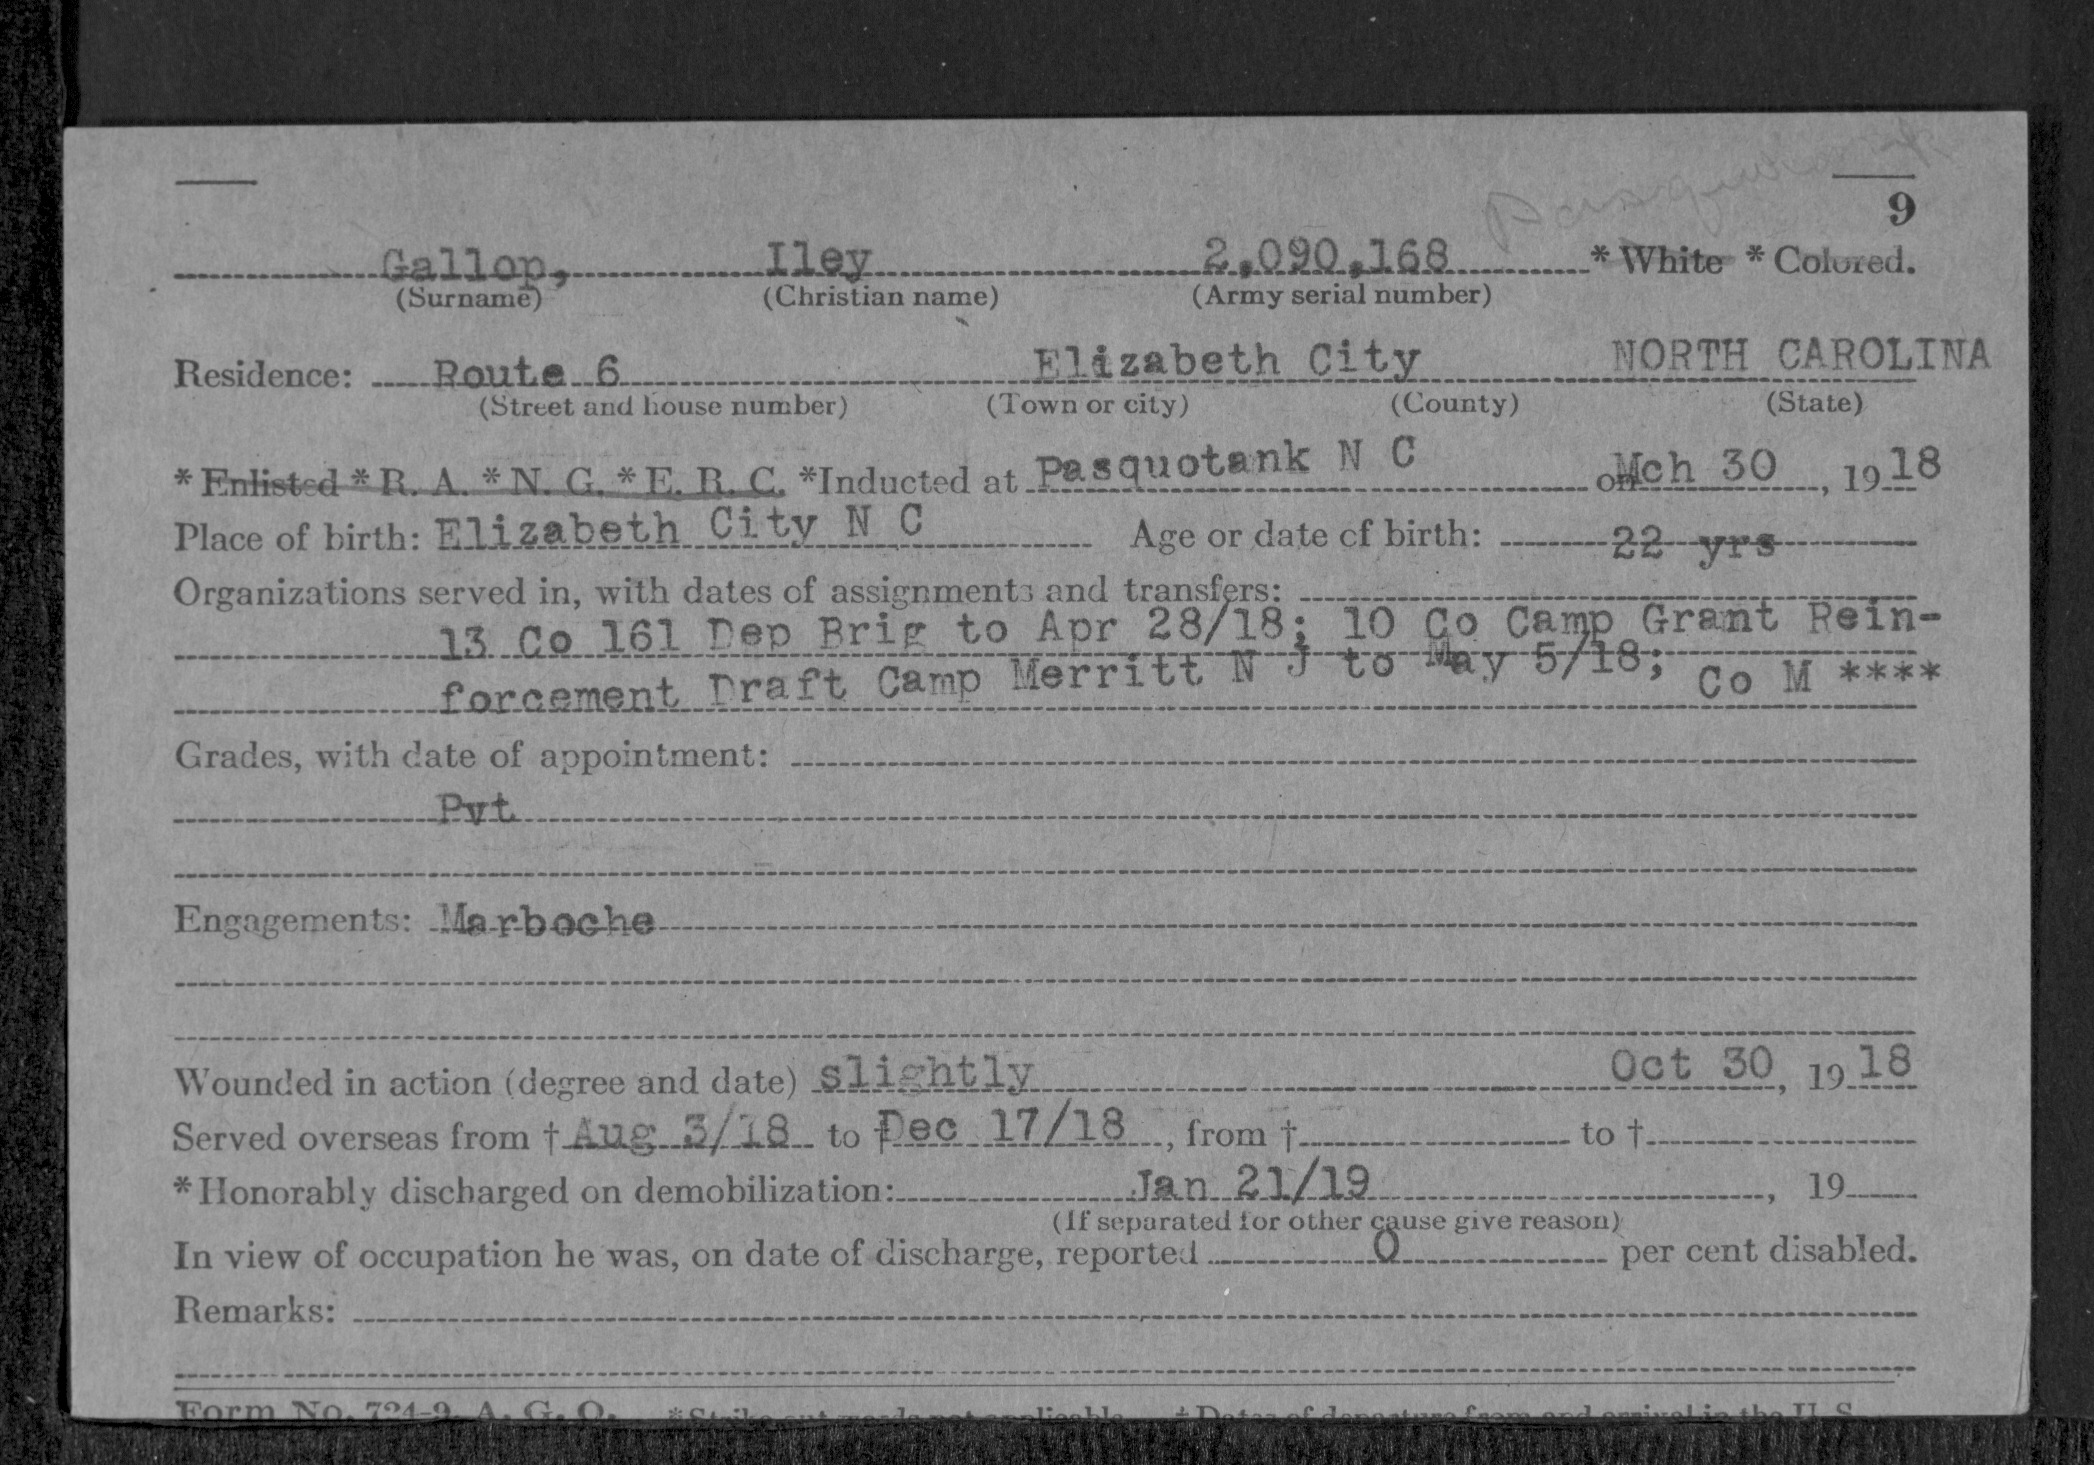 Pasquotank
9
Gallop, Iley 2,090,168 * White * Colored.
(Surname) (Christian name) (Army serial number)
Residence: Route 6 Elizabeth City NORTH CAROLINA
(Street and house number) (Town or city) (County) (State)
* Enlisted * R. A. * N. G. * E. R. C. *Inducted at Pasquotank N C on Mch 30, 1918
Place of birth: Elizabeth City N C Age or date of birth: 22 yrs
Organizations served in, with dates of assignments and transfers:
13 Co 161 Dep Brig to Apr 28/18; 10 Co Camp Grant Rein-
forcement Draft Camp Merritt N J to May 5/18; Co M ****
Grades, with date of appointment:
Pvt
Engagements: Marboche
Wounded in action (degree and date) slightly Oct 30, 1918
Served overseas from † Aug 3/18 to † Dec 17/18, from † to †
* Honorably discharged on demobilization: Jan 21/19, 19
(If separated for other cause give reason)
In view of occupation he was, on date of discharge, reported 0 per cent disabled.
Remarks:
Form No. 724-9, A. G. O. * Strike out words not applicable. † Dates of departure from and arrival in the U. S.